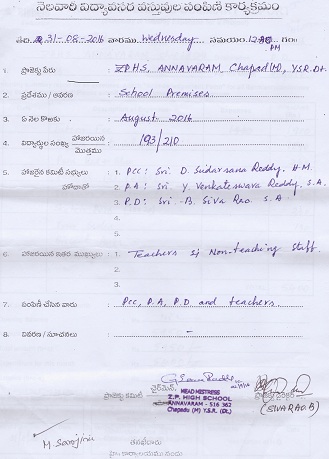 నెలవారీ విద్యావసర వస్తువుల పంపిణీ కార్యక్రమం
తేది. 31-08-2016 వారము Wednesday సమయం: 12 గం
PM
1. ప్రాజెక్టు పేరు : Z.P.H.S, ANNAVARAM, Chapad(M), Y.S.R. Dt.
2. ప్రదేశము / ఆవరణ : School Premises
3. ఏ నెల కొరకు : August 2016
4. విద్యార్థుల సంఖ్య హాజరయిన / మొత్తము : 193/210
5. హాజరైన కమిటీ సభ్యులు : 1. PCC: Sri D. Sudarsana Reddy, H.M.
హోదాతో 2. P.A: Sri. Y. Venkateswara Reddy, S.A.
3. P.D: Sri. B. Siva Rao. S.A
4.
5.
6. హాజరయిన ఇతర ముఖ్యులు : 1. Teachers & Non-teaching Staff.
2.
3.
7. పంపిణీ చేసిన వారు : Pcc, P.A, P.D and teachers.
8. వివరణ / సూచనలు : -
ప్రాజెక్టు కమిటీ ఛైర్మెన్
HEAD MISTRESS
Z.P. HIGH SCHOOL
ANNAVARAM - 516 362
Chapadu (M) Y.S.R. (Dt.)
ప్రాజెక్టు డైరెక్టర్
(SIVA RAO.B)
M. Sarojini